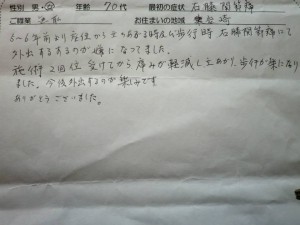 性別 男・女 年齢 70代 最初の症状 右膝関節痛
ご職業 お住まいの地域
5〜6年前より座位から立ちあがる時及び歩行時 右膝関節痛にて
外出するのが嫌になってました。
施術2回位受けてから痛みが軽減し立あがり、歩行が楽になり
ました。今後外出するのが楽しみです
ありがとうございました。